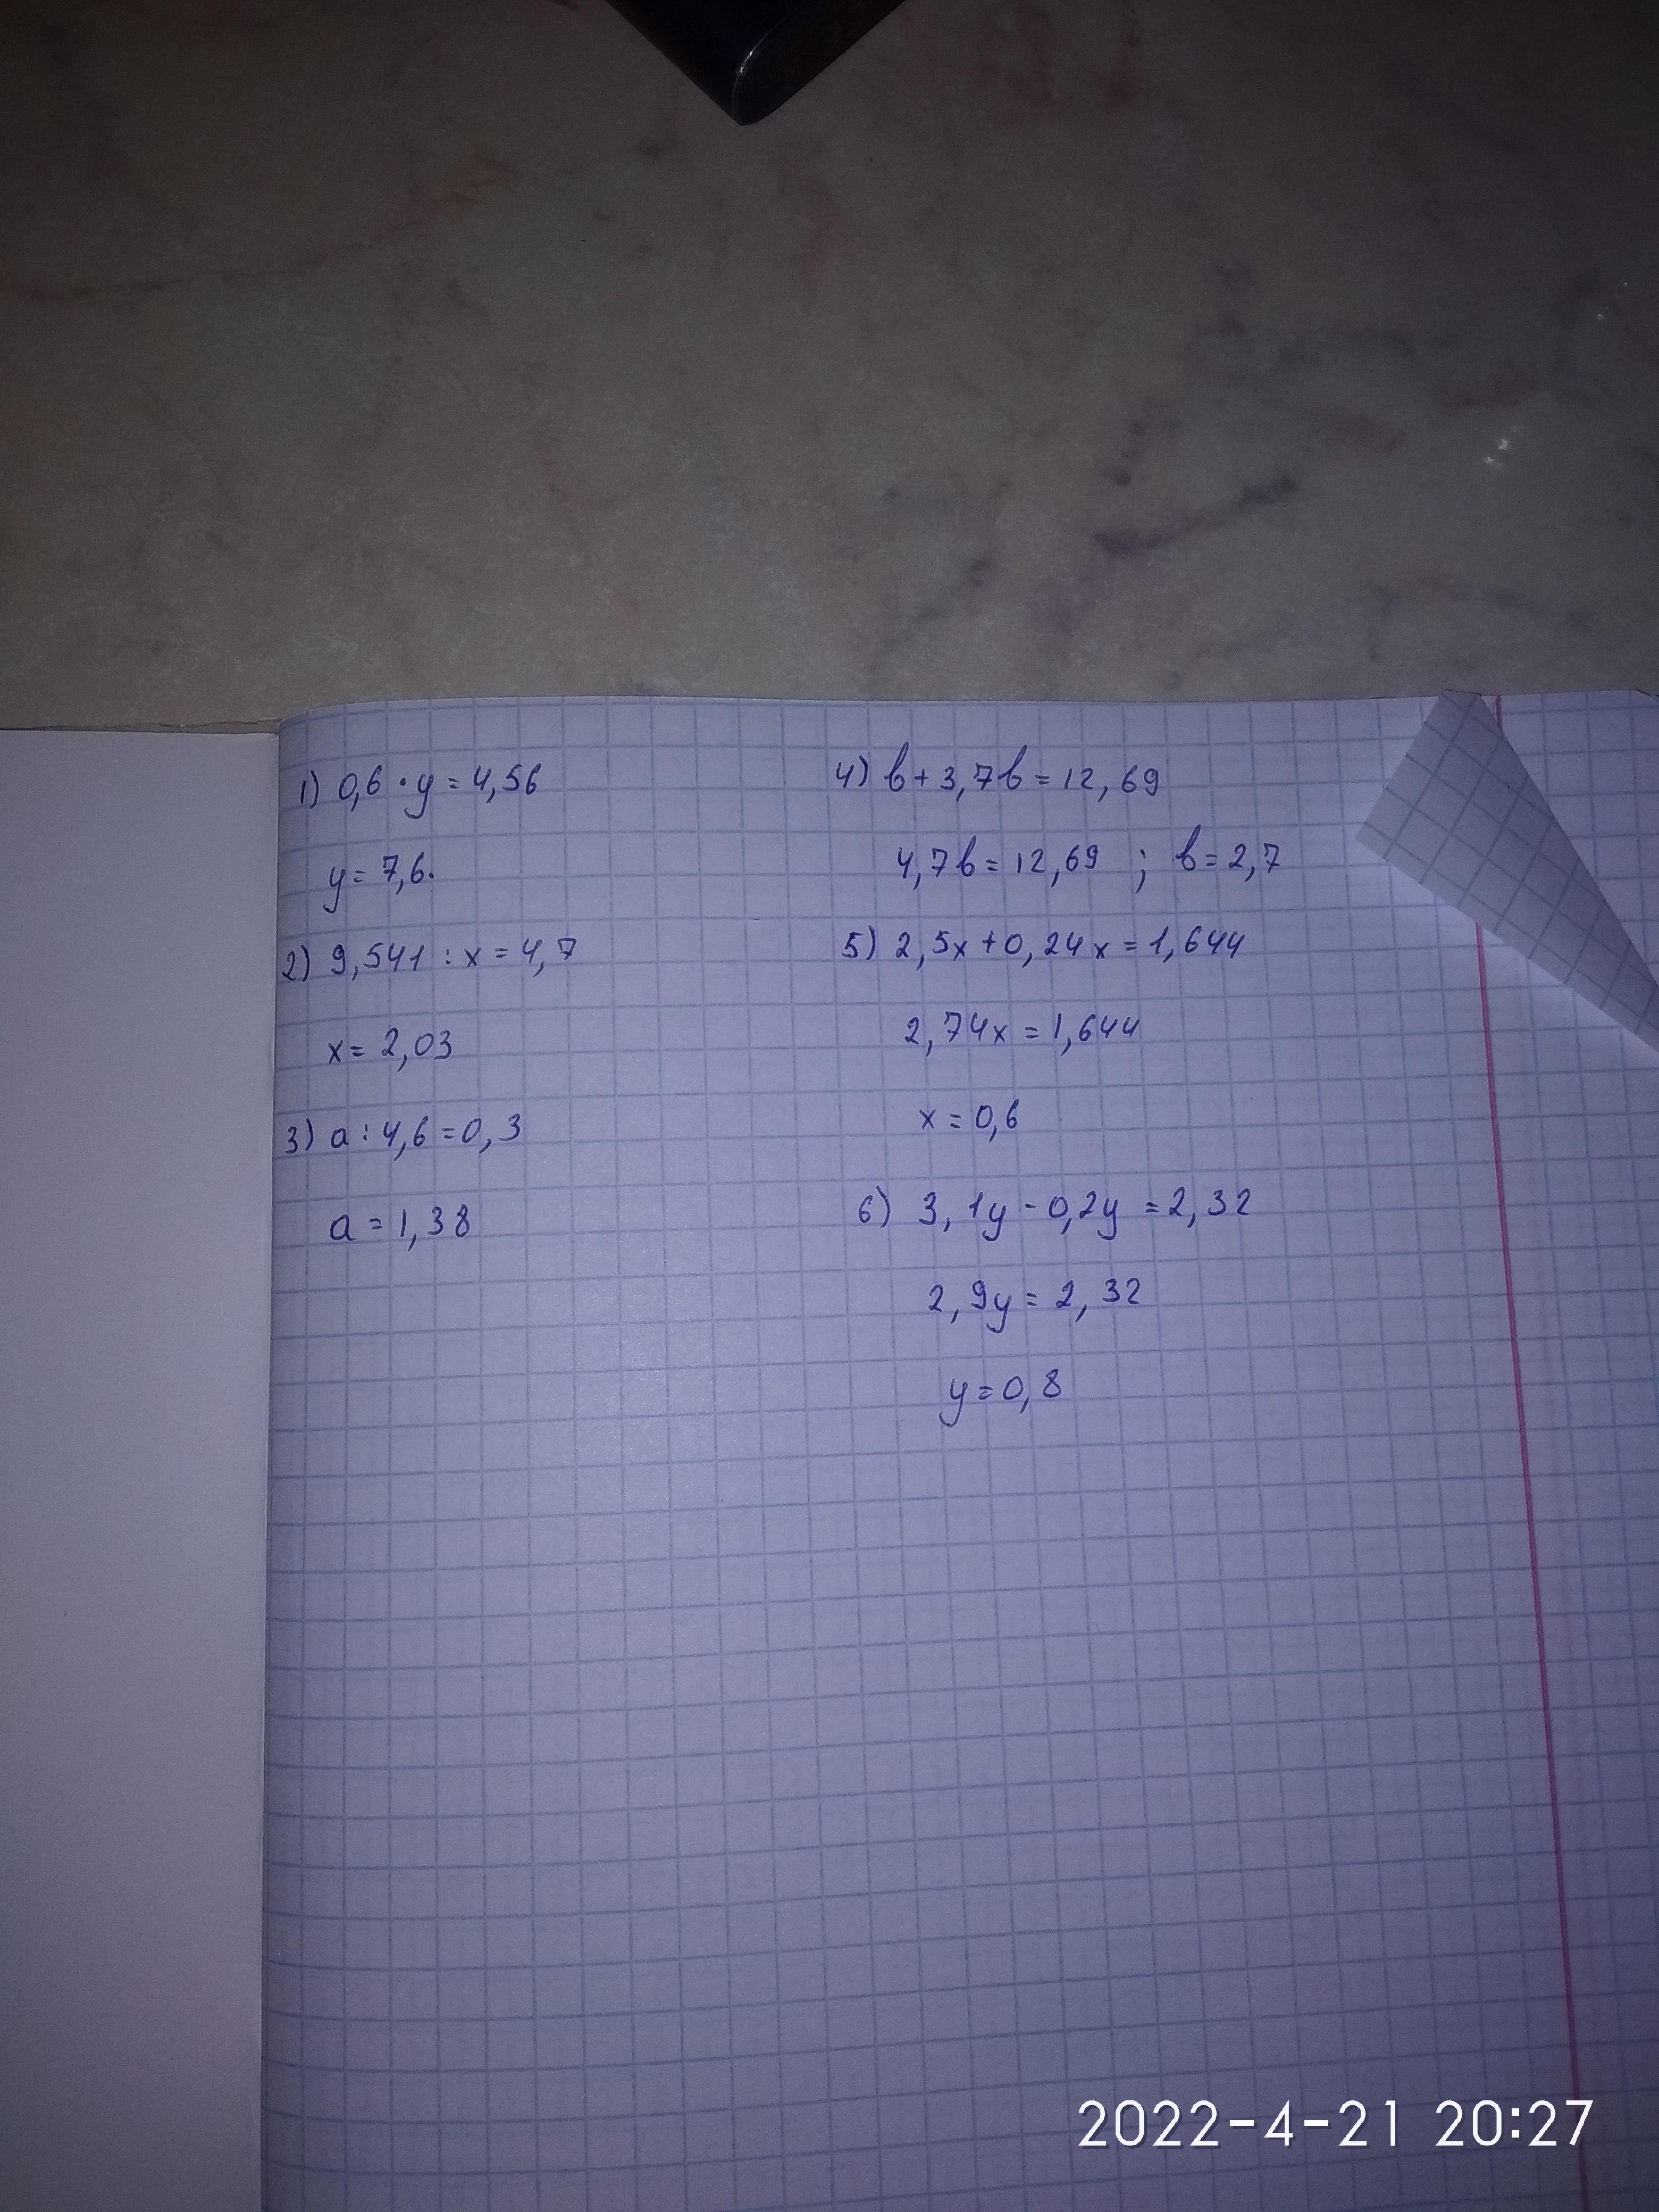 1) 0,6 · y = 4,56
y = 7,6.
2) 9,541 : x = 4,7
x = 2,03
3) a : 4,6 = 0,3
a = 1,38
4) b + 3,7b = 12,69
4,7b = 12,69 ; b = 2,7
5) 2,5x + 0,24x = 1,644
2,74x = 1,644
x = 0,6
6) 3,1y - 0,2y = 2,32
2,9y = 2,32
y = 0,8
2022-4-21 20:27